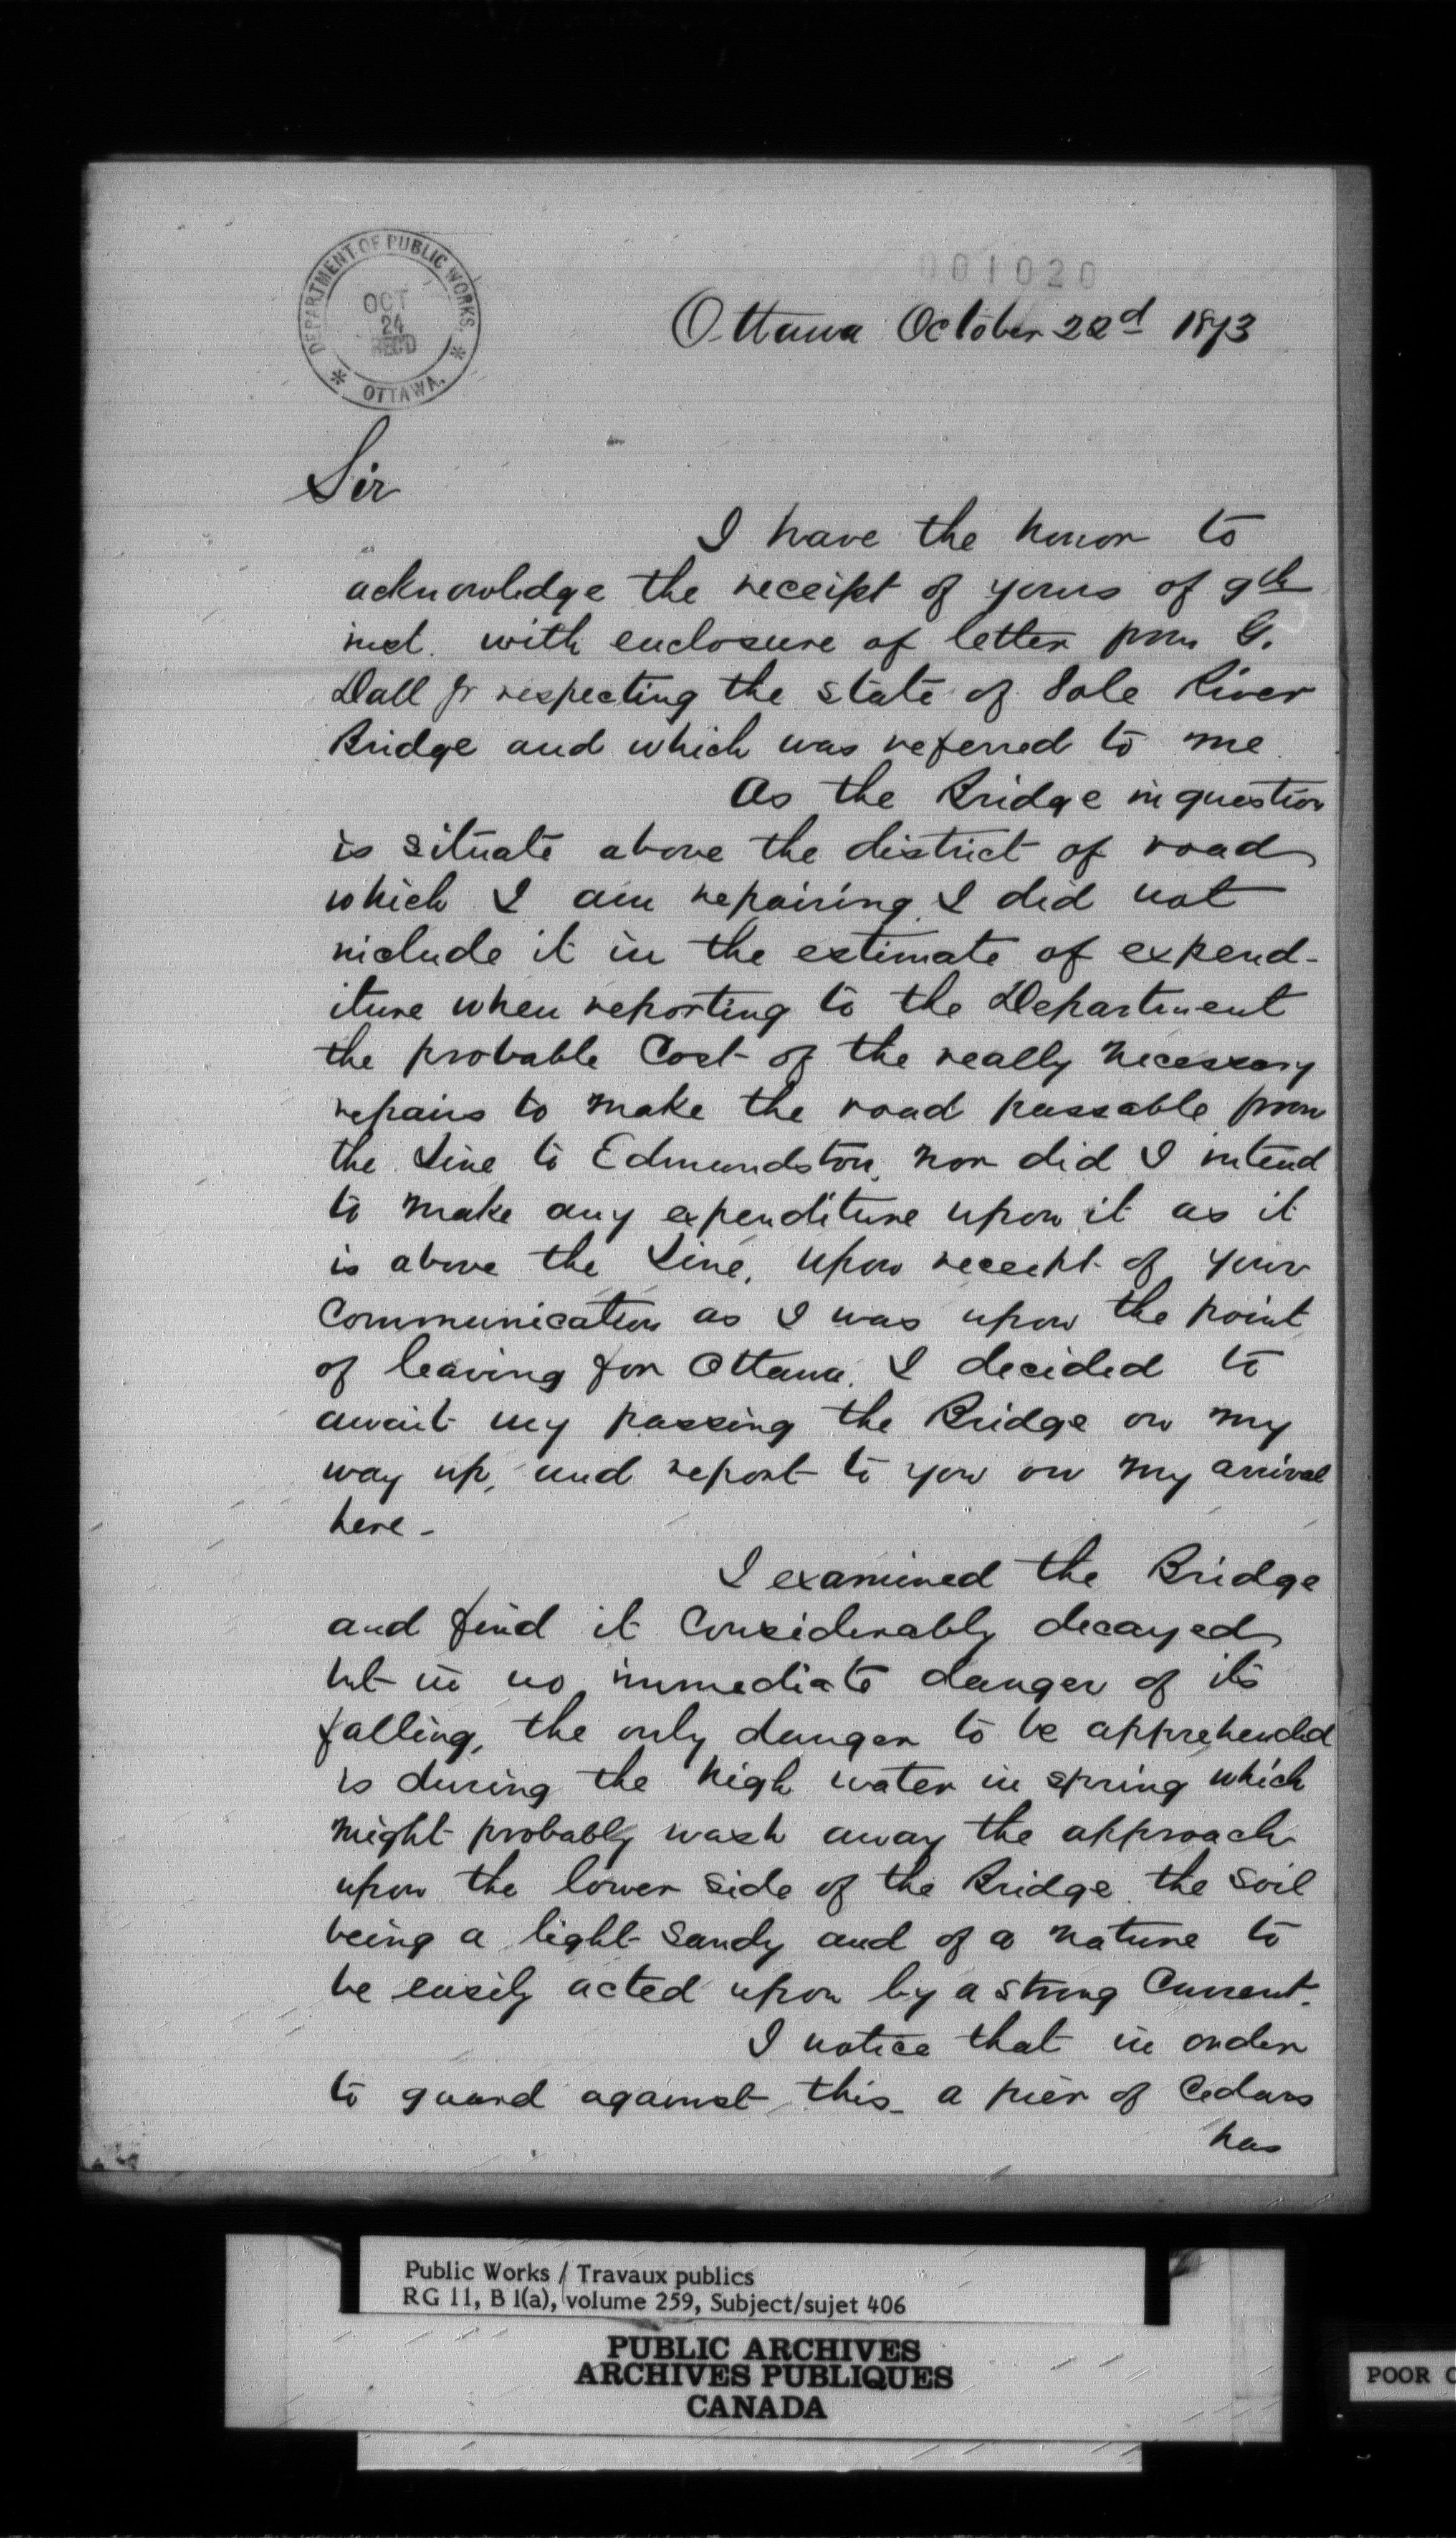 DEPARTMENT OF PUBLIC WORKS.
OCT
24
REC'D
* OTTAWA. *
001020
Ottawa October 22d 1873
Sir
I have the honor to
acknowledge the receipt of yours of 9th
inst. with enclosure of letter from G.
Dall Jr respecting the state of Sole River
Bridge and which was referred to me.
As the Bridge in question
is situate above the district of road
which I am repairing I did not
include it in the estimate of expend-
iture when reporting to the Department
the probable Cost of the really necessary
repairs to make the road passable from
the Line to Edmundston, nor did I intend
to make any expenditure upon it as it
is above the Line, upon receipt of your
Communication as I was upon the point
of leaving for Ottawa. I decided to
await my passing the Bridge on my
way up, and report to you on my arrival
here -
I examined the Bridge
and find it Considerably decayed
but in no immediate danger of its
falling, the only danger to be apprehended
is during the high water in spring which
might probably wash away the approach
upon the lower side of the Bridge the soil
being a light Sandy and of a nature to
be easily acted upon by a strong Current.
I notice that in order
to guard against this - a pier of Cedars
has
Public Works / Travaux publics
RG 11, B 1(a), volume 259, Subject/sujet 406
PUBLIC ARCHIVES
ARCHIVES PUBLIQUES
CANADA
POOR